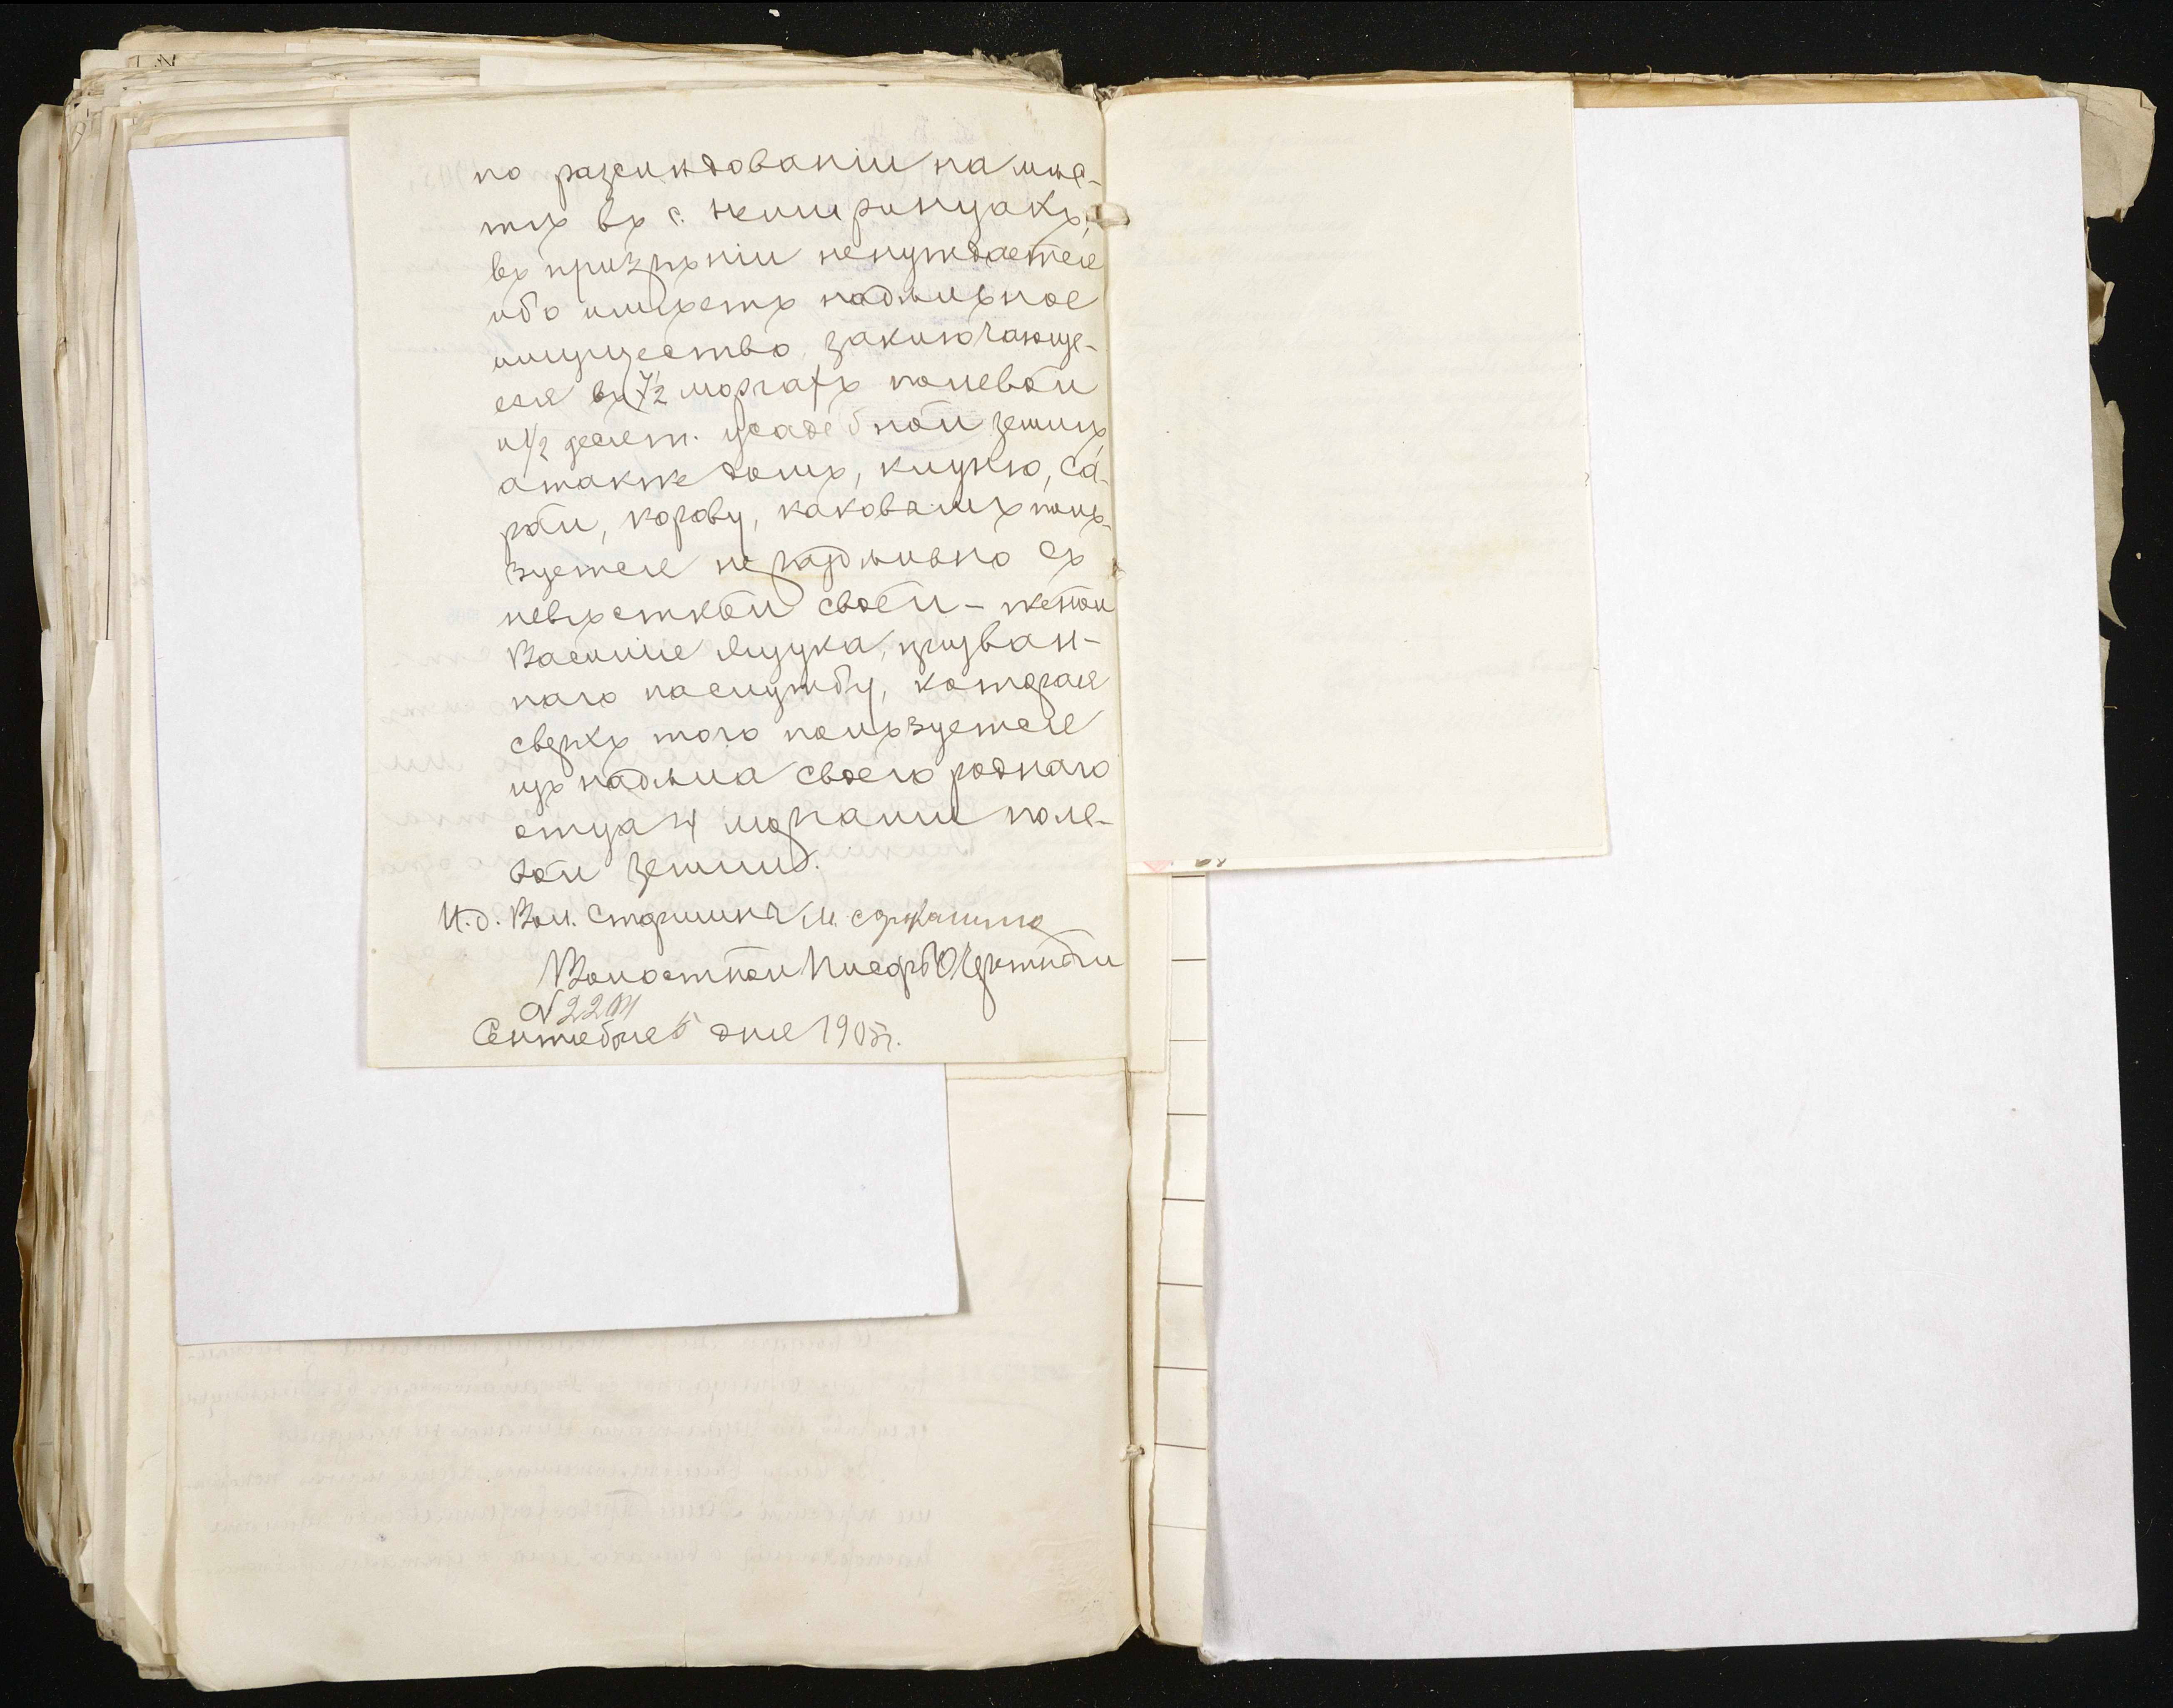 по разслѣдованіи на мѣс-
тѣ въ с. Немиринцахъ,
въ призрѣніи ненуждается
ибо имѣетъ надѣльное
имущество, заключающе-
еся въ 7½ моргахъ полевой
и ½ десят. усадебной земли,
а также домъ, клуню, са-
рай, корову, каковымъ поль-
зуется нераздѣльно съ
невѣсткой своей – женой
Василія Яцука, призван-
наго на службу, которая
сверхъ того пользуется
изъ надѣла своего роднаго
отца 4 моргами поле-
вой земли.
И.д. Вол. Старшины
Волостной Писарь
№ 2201
Сентября 5 дня 1905 г.